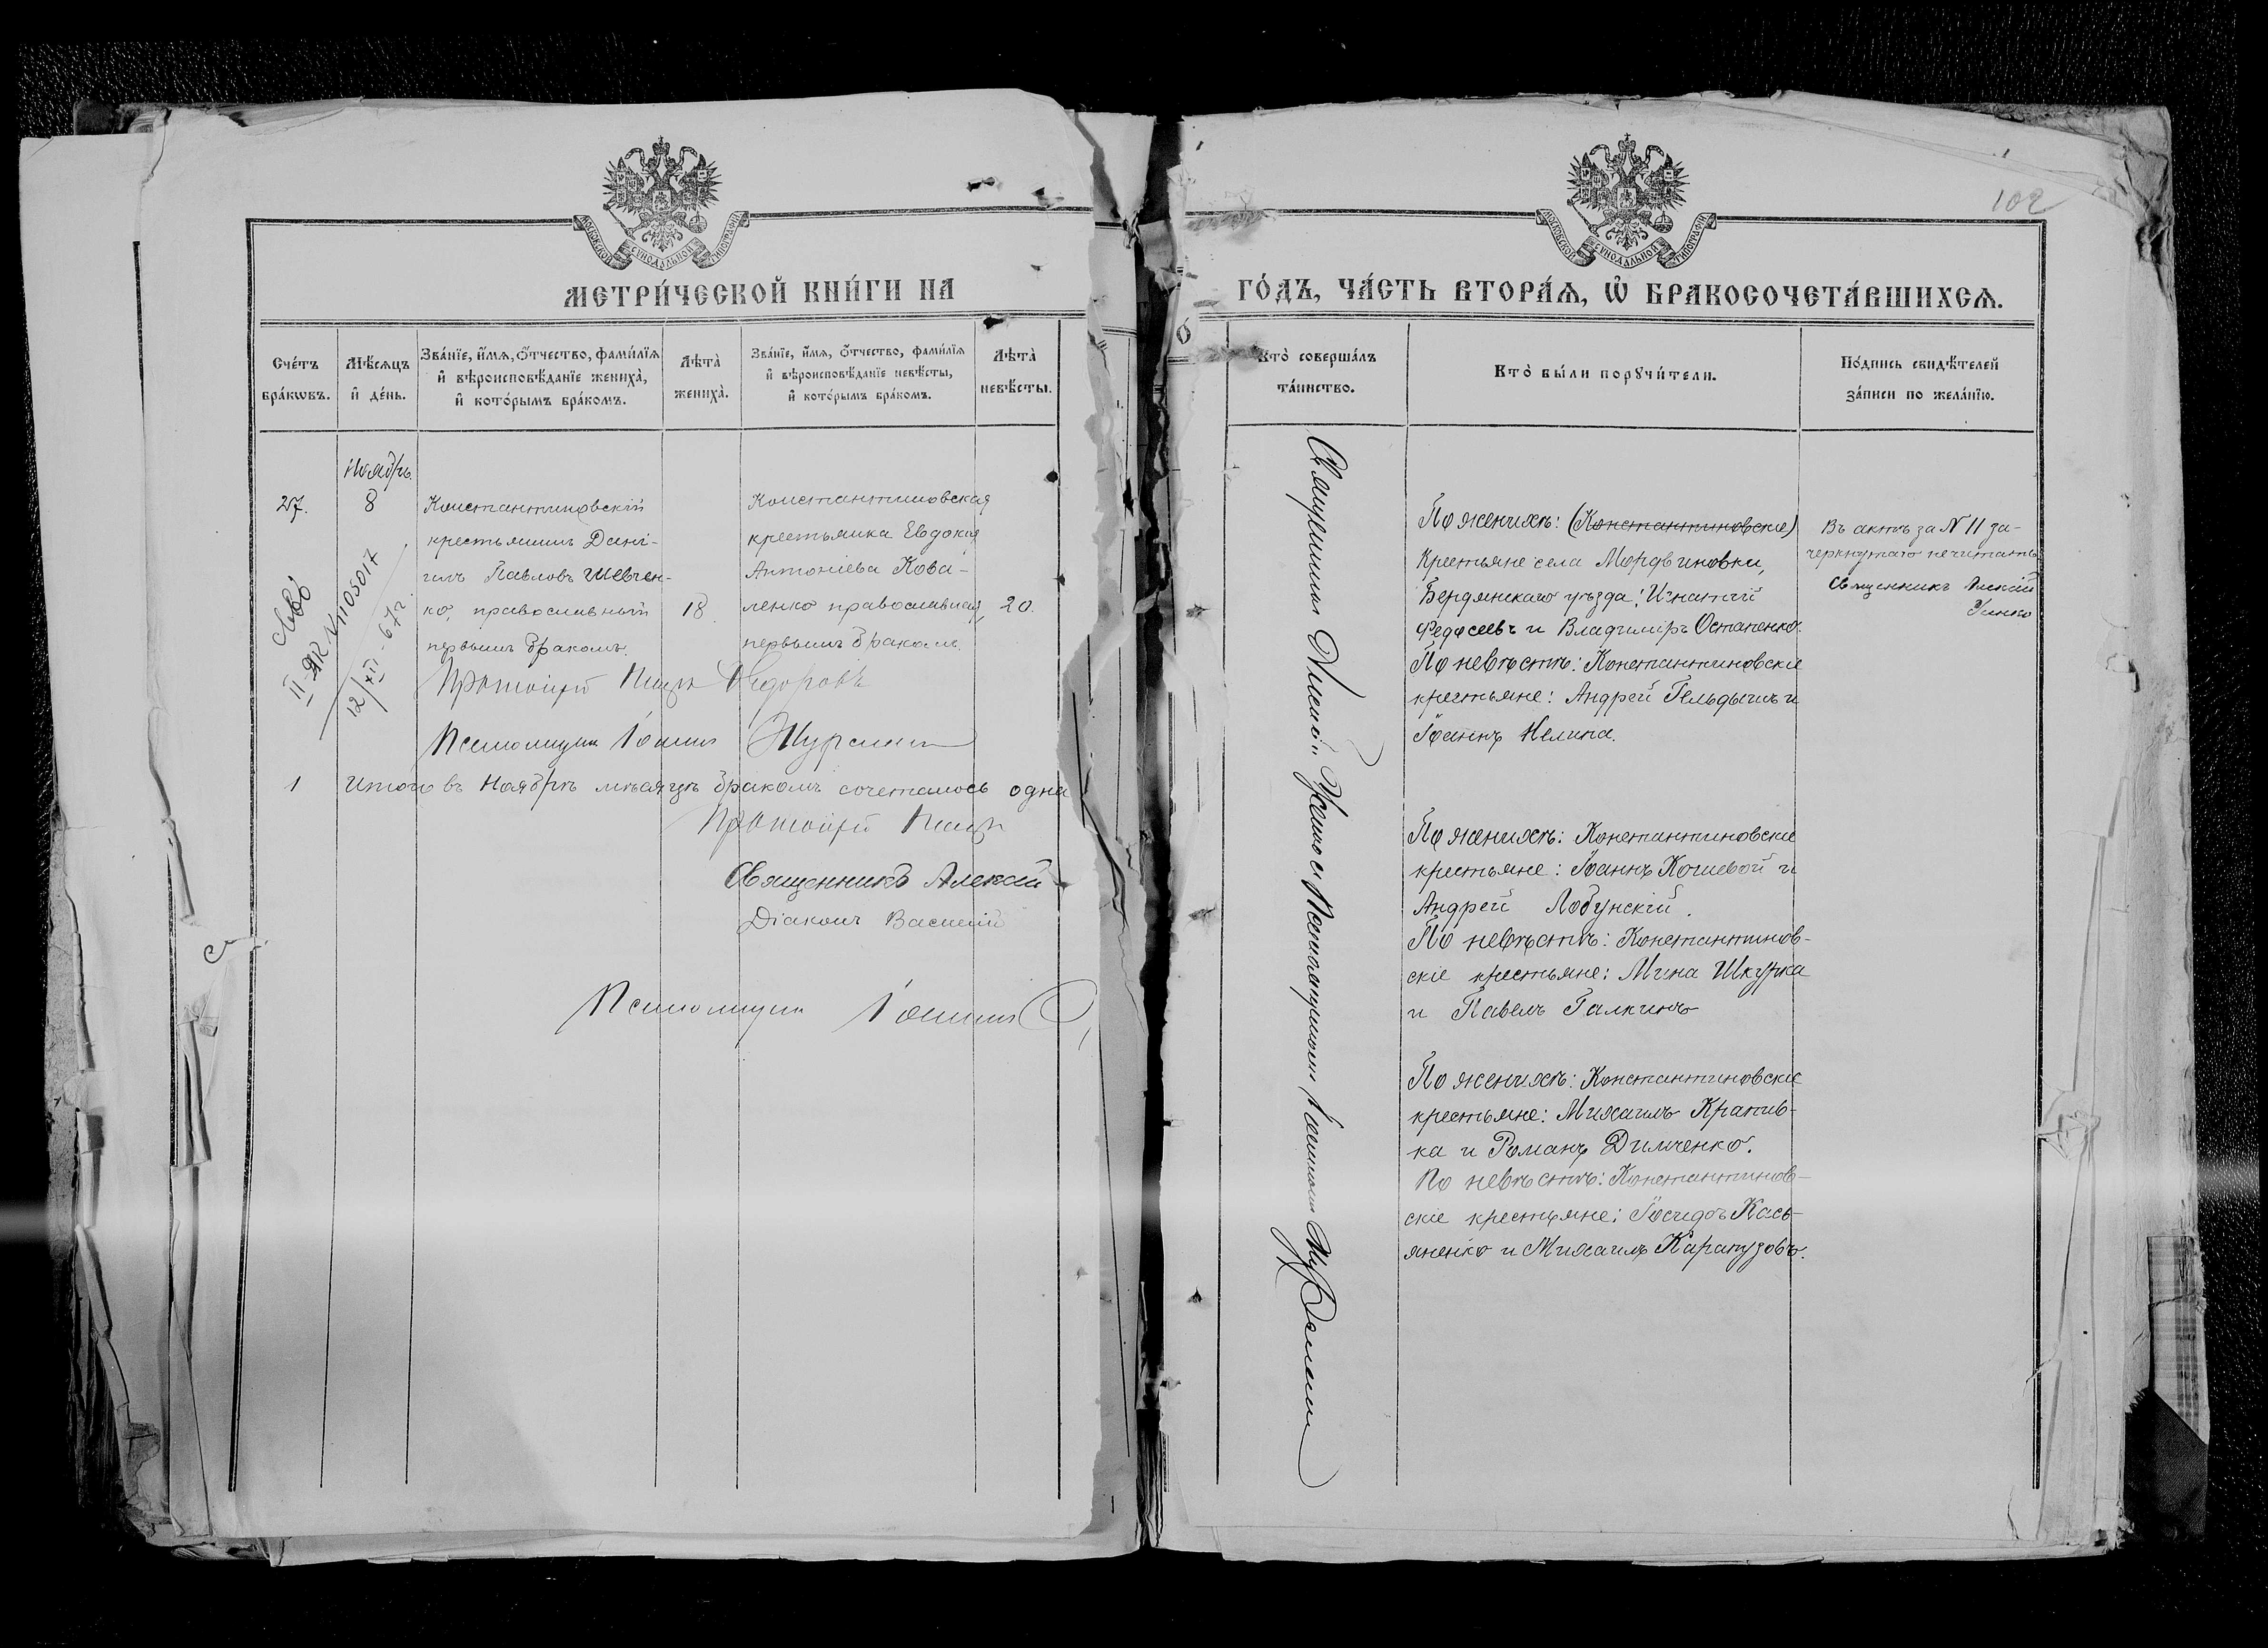 МОСКОВСКОЙ СУНОДАЛЬНОЙ ТИПОГРАФІИ
МЕТРИ́ЧЕСКОЙ КНИ́ГИ НА
Сче́тъ бра́кѡвъ.
Мѣ́сѧцъ и҆ де́нь.
Зва́нїе, и҆́мѧ, ѻ҆́тчество, фами́лїѧ
и҆ вѣроисповѣ́данїе жениха̀,
и҆ кото́рымъ бра́комъ.
Лѣта̀ жениха̀.
Зва́нїе, и҆́мѧ, ѻ҆́тчество, фами́лїѧ
и҆ вѣроисповѣ́данїе невѣ́сты,
и҆ кото́рымъ бра́комъ.
Лѣта̀ невѣ́сты.
Ноябрь.
27.
8
Константиновскій
крестьянинъ Дані-
илъ Павловъ Шевчен-
ко, православный
первымъ бракомъ.
18
Константиновская
крестьянка Евдокія
Антоніева Кова-
ленко православная,
первымъ бракомъ.
20.
II-ЯК № 1105017
12/XII-67г.
Протоіерей Петръ Федоровъ
Псаломщикъ Іоаннъ
1
Итого въ Ноябрѣ мѣсяцѣ бракомъ сочеталось одна
Протоіерей Петръ
Священникъ Алексій
Діаконъ Василій
Псаломщикъ Іоаннъ
102
МОСКОВСКОЙ СУНОДАЛЬНОЙ ТИПОГРАФІИ
ГО́ДЪ, ЧА́СТЬ ВТОРА́Ѧ, Ѡ҆ БРАКОСОЧЕТА́ВШИХСѦ.
Кто̀ соверша́лъ
та́инство.
Кто̀ бы́ли порꙋчи́тели.
По́дпись свидѣ́телей
за́писи по жела́нїю.
Священникъ Алексій Уенко съ Псаломщикомъ Іоанномъ
По женихѣ: (Константиновскіе)
Крестьяне села Мордвиновки,
Бердянскаго уѣзда: Игнатій
Федосеевъ и Владиміръ Остапенко.
По невѣстѣ: Константиновскіе
крестьяне: Андрей Гельдышъ и
Іоаннъ Нелипа.
Въ актѣ за N 11 за-
черкнутаго не читать
Священникъ Алексій
Уенко
По женихѣ: Константиновскіе
крестьяне: Іоаннъ Кошевой и
Андрей Лобунскій.
По невѣстѣ: Константинов-
скіе крестьяне: Мина Шкурка
и Павелъ Галкинъ
По женихѣ: Константиновскіе
крестьяне: Михаилъ Крапив-
ка и Романъ Димченко.
По невѣстѣ: Константинов-
скіе крестьяне: Іосифъ Кась-
яненко и Михаилъ Карапузовъ.